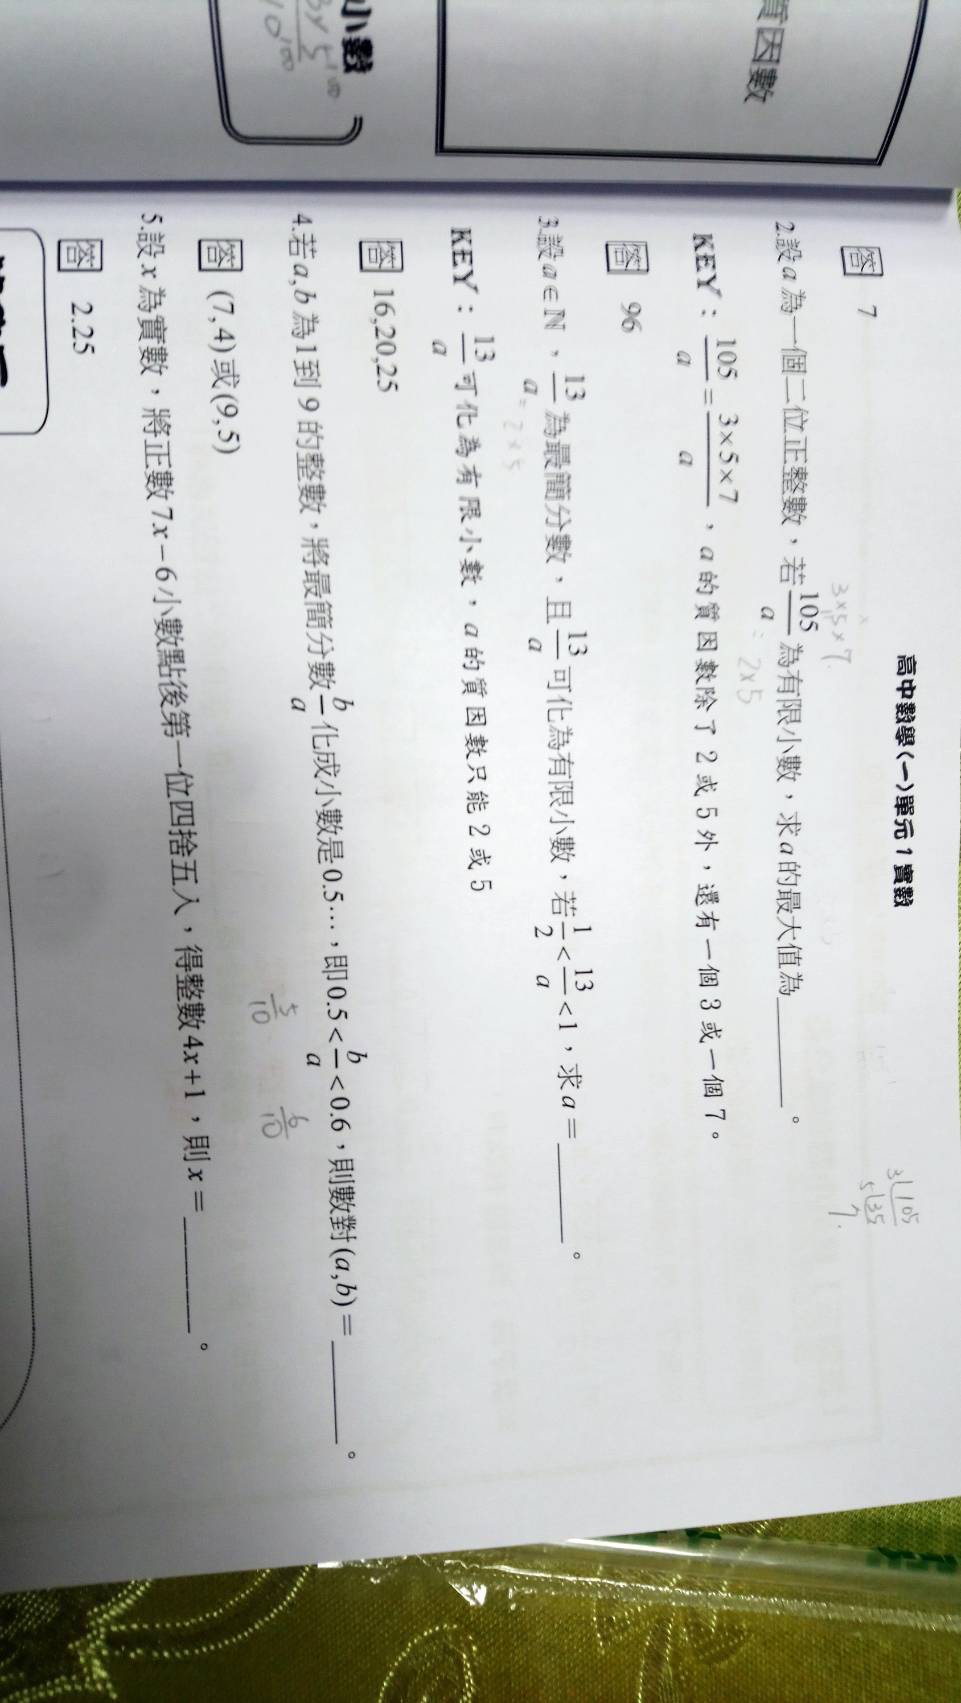 質因數
小數
高中數學(一)單元1實數
3 105
5 35
7.
答 7
3×5×7.
2.設a為一個二位正整數，若105/a為有限小數，求a的最大值為______。
2×5
KEY：105/a=3×5×7/a，a的質因數除了2或5外，還有一個3或一個7。
答 96
3.設a∈ℕ，13/a為最簡分數，且13/a可化為有限小數，若1/2<13/a<1，求a=______。
=2×5
KEY：13/a可化為有限小數，a的質因數只能2或5
答 16,20,25
4.若a,b為1到9的整數，將最簡分數b/a化成小數是0.5…，即0.5<b/a<0.6，則數對(a,b)=______。
5/10 6/10
答 (7,4)或(9,5)
5.設x為實數，將正數7x−6小數點後第一位四捨五入，得整數4x+1，則x=______。
答 2.25